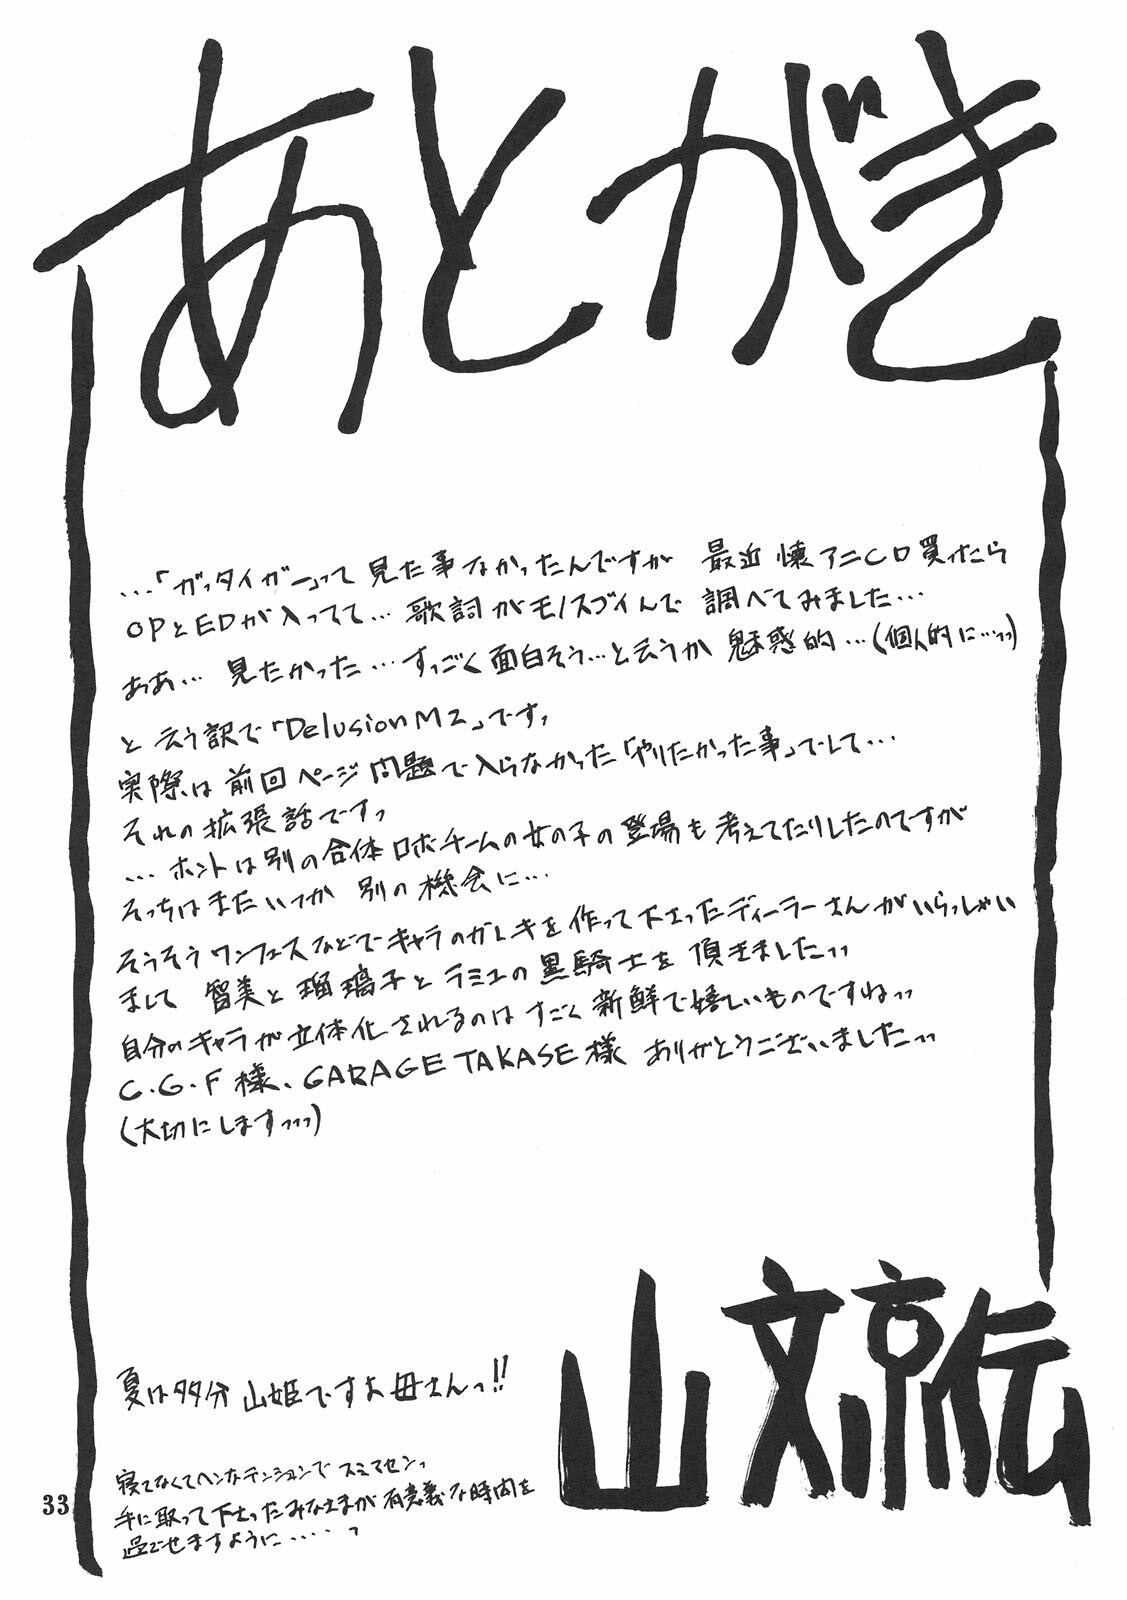 あとがき
…「ガッタイガー」って見た事なかったんですが 最近 懐アニCD買ったら
OPとEDが入ってて… 歌詞がモノスゴイんで 調べてみました…
あぁ… 見たかった… すっごく面白そう…と云うか 魅惑的…(個人的に…っっ)
と云う訳で「Delusion M2」ですっ
実際は前回ページ問題で入らなかった「やりたかった事」でして…
それの拡張話ですっ
…ホントは別の合体ロボチームの女の子の登場も考えてたりしたのですが
そっちはまたいつか 別の機会に…
そうそうワンフェスなどでキャラのガレキを作って下さったディーラーさんがいらっしゃい
まして 智美と瑠璃子とラミュの黒騎士を 頂きましたっっ
自分のキャラが立体化されるのはすごく新鮮で嬉しいものですねっっ
C.G.F様、GARAGE TAKASE様 ありがとうございましたっっ
(大切にしますっっっ)
夏は多分 山姫ですお母さんっ!!
寝てなくてヘンなテンションでスミマセンっ
手に取って下さったみなさまが有意義な時間を
過ごせますように……っ
山文京伝
33